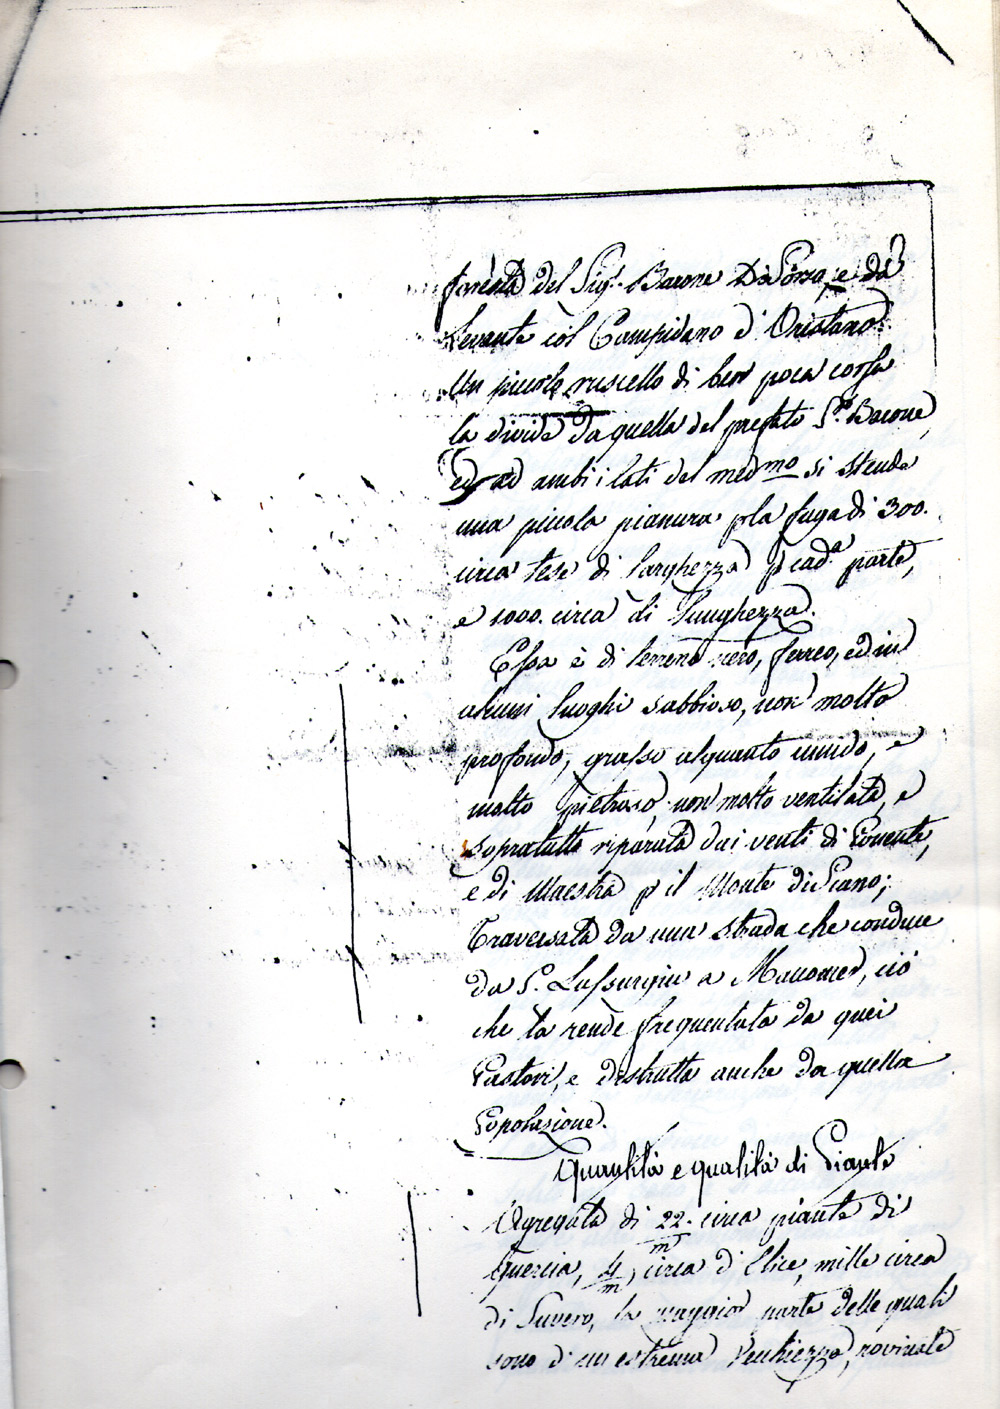 foresta del Sig.r Barone Di Sorso, e da
Levante col Campidano d'Oristano.
Un piccolo ruscello di ben poca corsa
la divide da quella del prefato S.r Barone,
ed ad ambi i lati del med.mo si stende
una piccola pianura p la fuga di 300.
circa tese di larghezza p cad.a parte,
e 1000. circa di lunghezza.
Essa è di terreno nero, ferreo, ed in
alcuni luoghi sabbioso, non molto
profondo, grasso alquanto umido, e
molto pietroso, non molto ventilata, e
sopratutto riparata dai venti di Ponente,
e di Maestra p il Monte di Piano;
Traversata da una strada che conduce
da S. Lussurgiu a Macomer, ciò
che la rende frequentata da quei
Pastori, e distrutta anche da quella
Popolazione.
Quantità e qualità di Piante
Agregata di 22/m circa piante di
Quercia, 4/m circa d'Elice, mille circa
di Suvero, la maggior parte delle quali
sono d'un estrema vecchiezza, rovinate